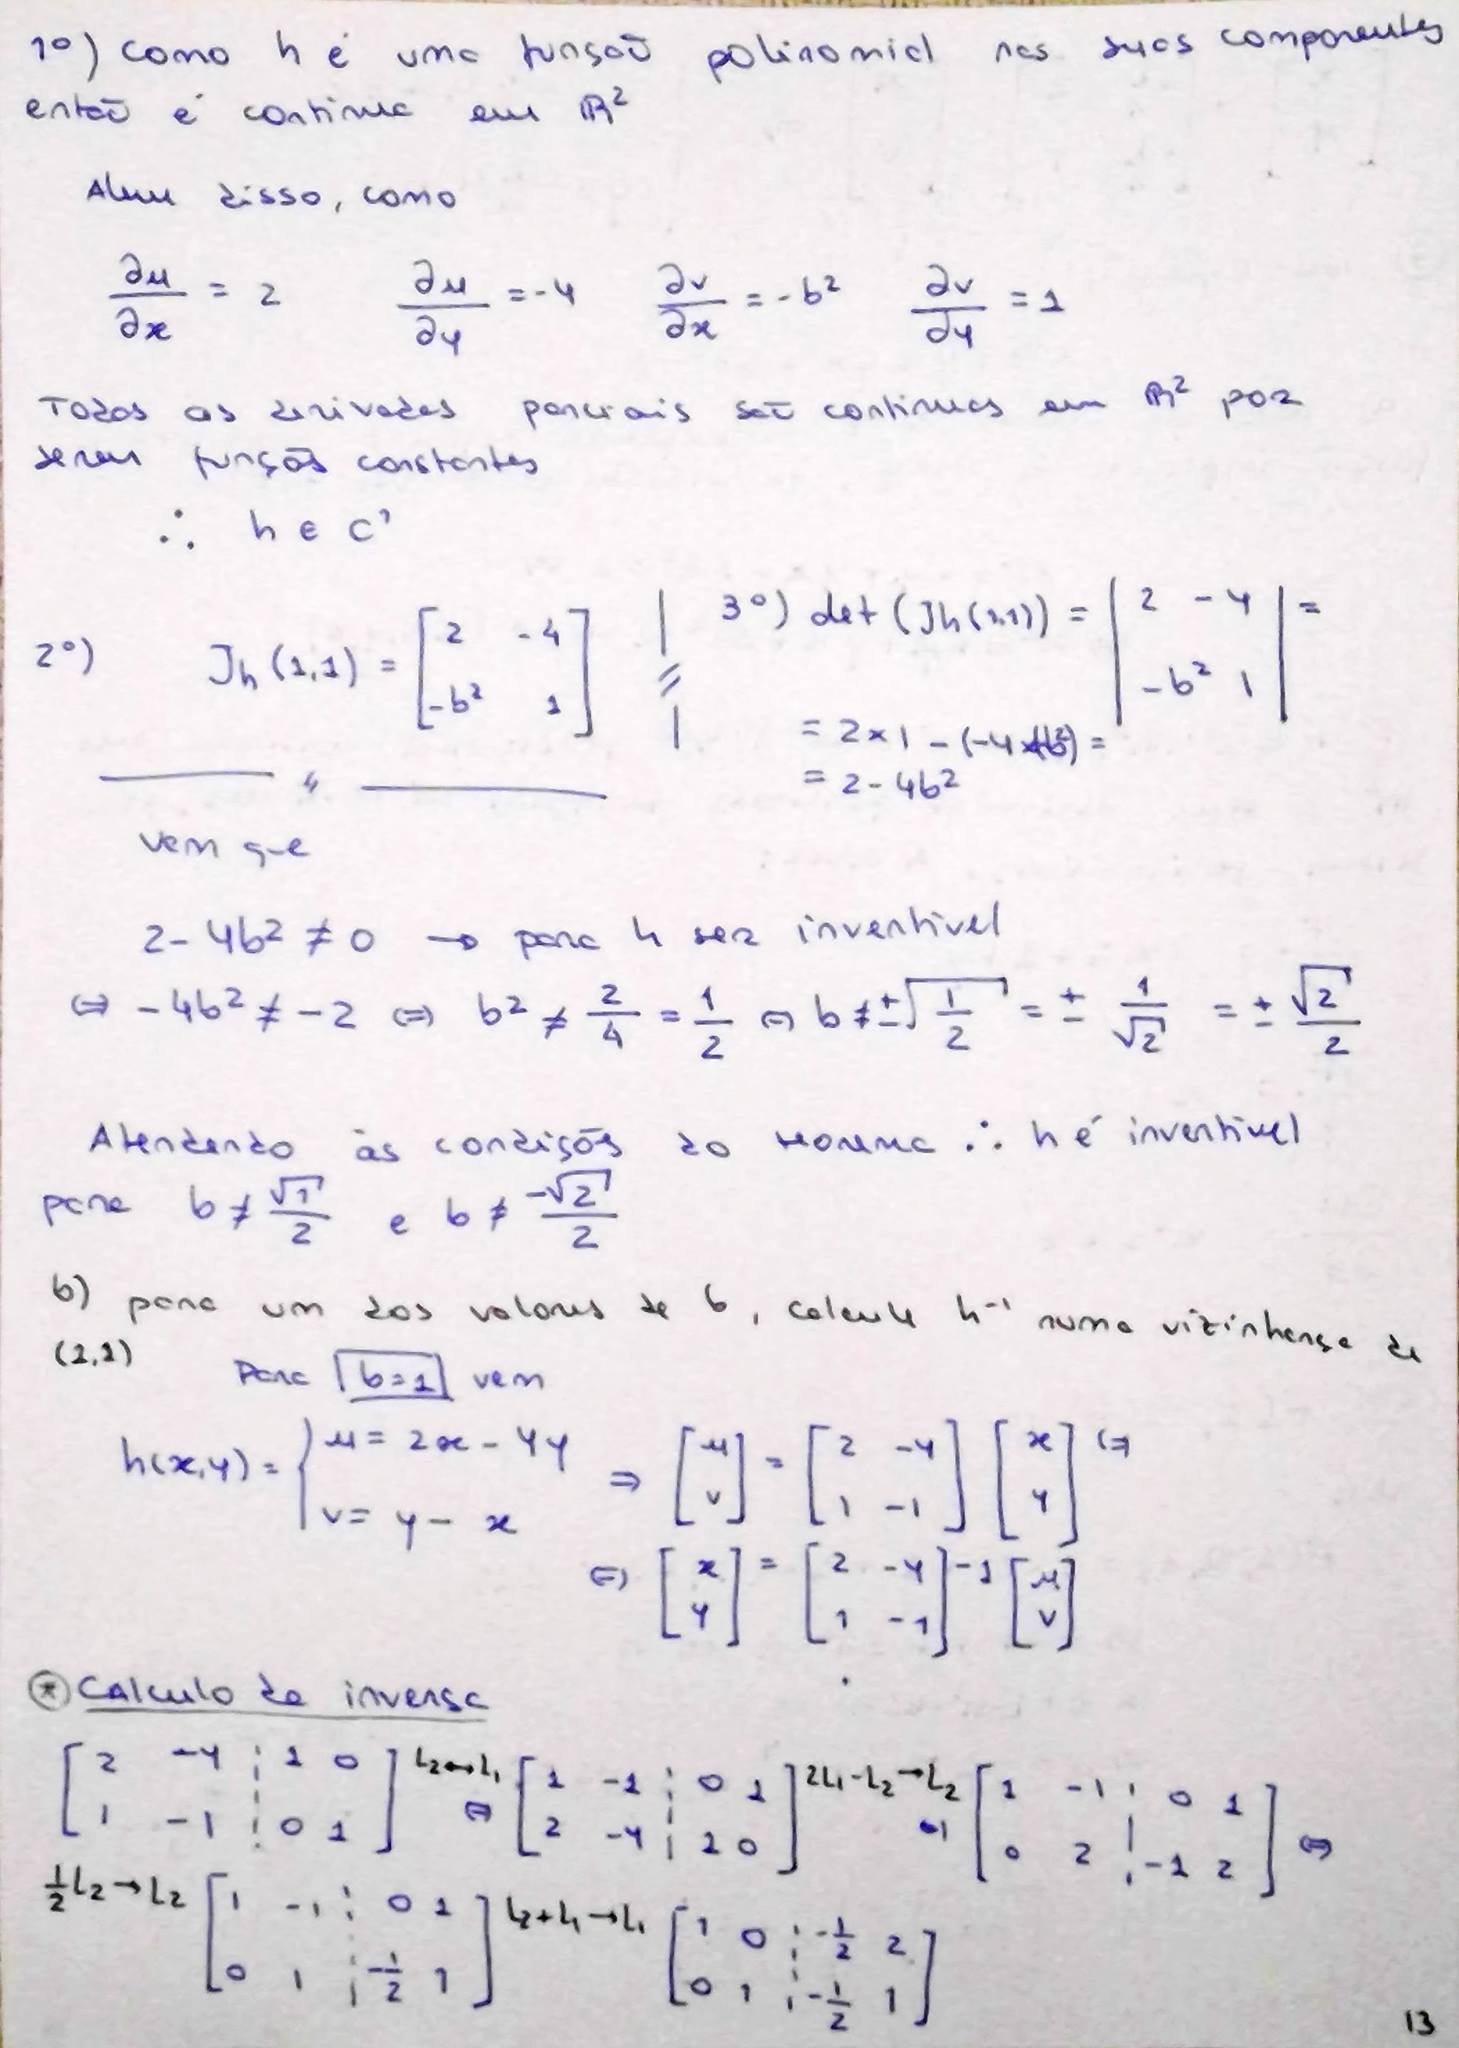 1º) Como h é uma função polinomial nas suas componentes
então é contínua em ℝ²
Além disso, como
∂u/∂x = 2   ∂u/∂y = -4   ∂v/∂x = -b²   ∂v/∂y = 1
Todas as derivadas parciais são contínuas em ℝ² por
serem funções constantes
∴ h ∈ C¹
2º) Jh (1,1) = [2 -4; -b² 1]
3º) det (Jh(1,1)) = |2 -4; -b² 1| =
= 2×1 - (-4×(-b²)) =
= 2 - 4b²
vem que
2 - 4b² ≠ 0 → para h ser invertível
⇔ -4b² ≠ -2 ⇔ b² ≠ 2/4 = 1/2 ⇔ b ≠ ±√(1/2) = ± 1/√2 = ± √2/2
Atendendo às condições do teorema ∴ h é invertível
para b ≠ √1/2 e b ≠ -√2/2
b) para um dos valores de b, calcule h⁻¹ numa vizinhança de
(1,1) Para b=1 vem
h(x,y) = { u = 2x - 4y; v = y - x ⇒ [u; v] = [2 -4; 1 -1] [x; y] ⇔
⇔ [x; y] = [2 -4; 1 -1]⁻¹ [u; v]
⊛ Calculo da inversa
[2 -4 ¦ 1 0; 1 -1 ¦ 0 1] L2↔L1 ⇔ [1 -1 ¦ 0 1; 2 -4 ¦ 1 0] 2L1-L2→L2 ⇔ [1 -1 ¦ 0 1; 0 2 ¦ -1 2] ⇔
½L2→L2 [1 -1 ¦ 0 1; 0 1 ¦ -½ 1] L2+L1→L1 [1 0 ¦ -½ 2; 0 1 ¦ -½ 1]
13